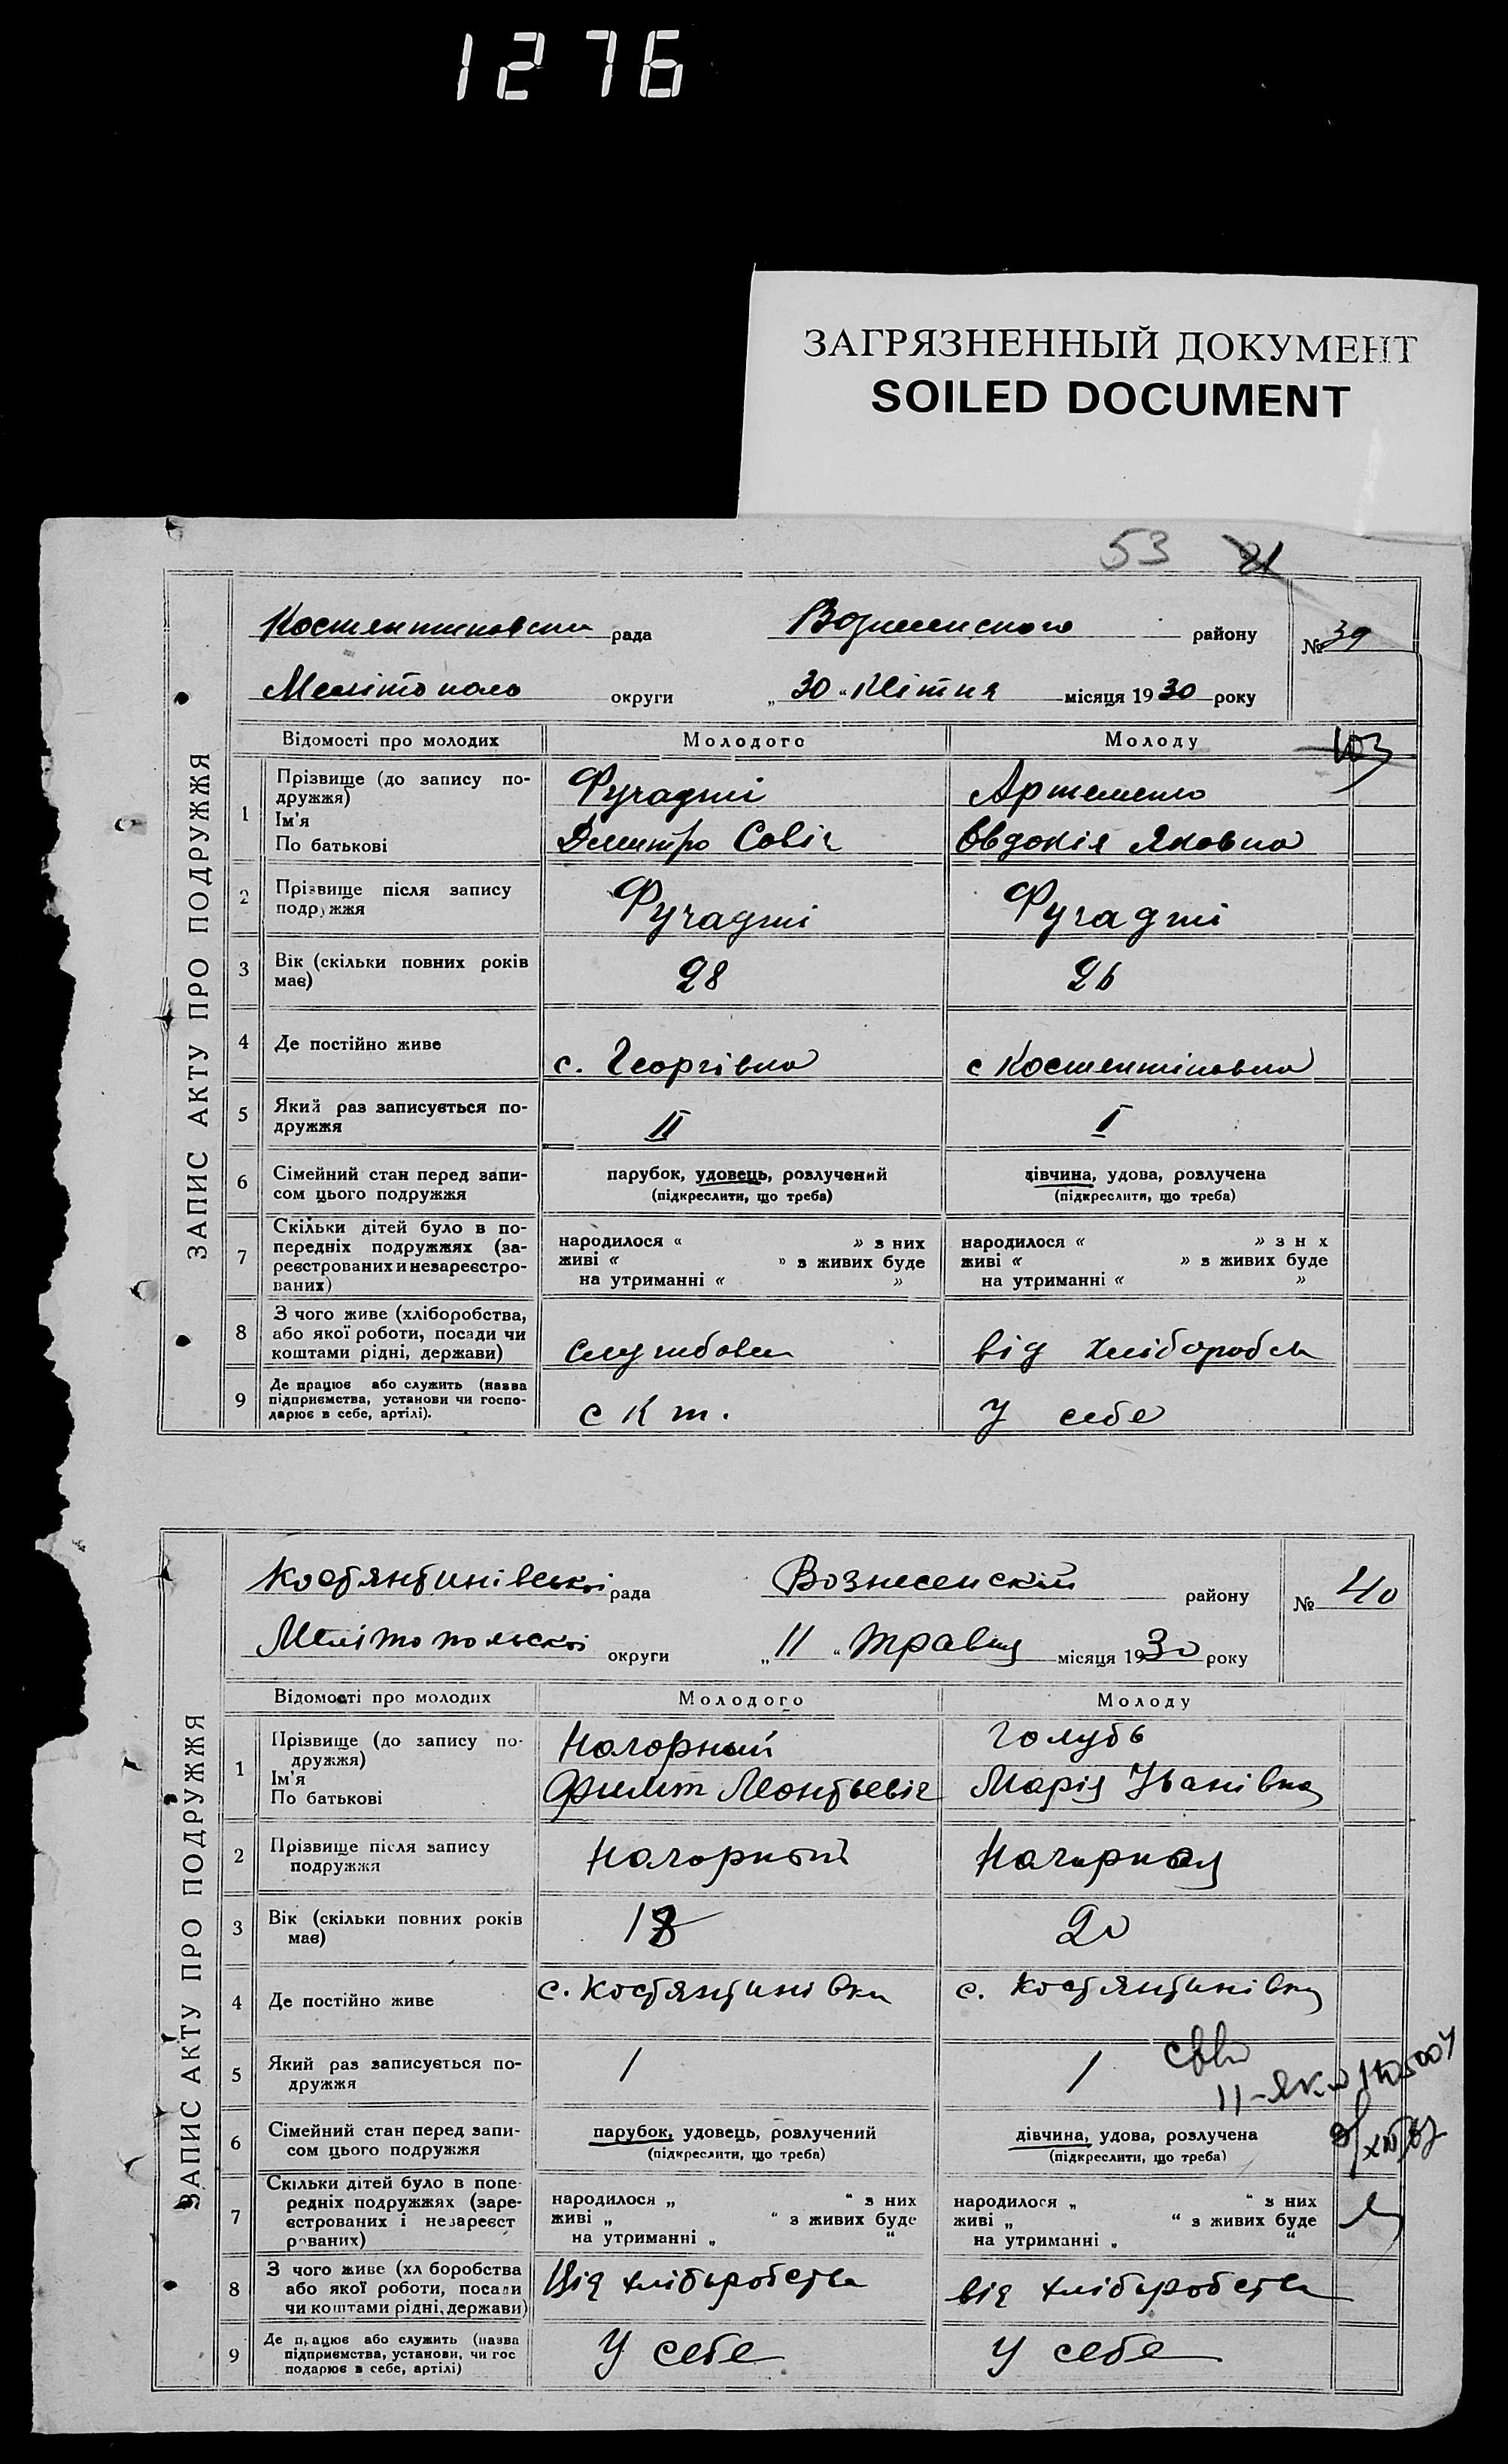 1276
ЗАГРЯЗНЕННЫЙ ДОКУМЕНТ
SOILED DOCUMENT
53 21
ЗАПИС АКТУ ПРО ПОДРУЖЖЯ
рада району № 39
Мелітополь округи „ 30 “ Квітня місяця 1930 року
Відомості про молодих Молодого Молоду 103
1 Прізвище (до запису по-
дружжя)
Ім'я
По батькові
Фучаджі Артеменко
Дмитро Совіч Овдокія Яковна
2 Прізвище після запису
подружжя
Фучаджі Фучаджі
3 Вік (скільки повних років
має)
28 26
4 Де постійно живе с. Георгівка с Костентіновка
5 Який раз записується по-
дружжя
II I
6 Сімейний стан перед запи-
сом цього подружжя
парубок, удовець, розлучений дівчина, удова, розлучена
(підкреслити, що треба) (підкреслити, що треба)
7 Скільки дітей було в по-
передніх подружжях (за-
реєстрованих и незареєстро-
ваних)
народилося « » з них народилося « » з н х
живі « » з живих буде живі « » з живих буде
на утриманні « » на утриманні « »
8 З чого живе (хліборобства,
або якої роботи, посади чи
коштами рідні, держави)
від
9 Де працює або служить (назва
підприємства, установи чи госпо-
дарює в себе, артілі).
С К т. У себе
ЗАПИС АКТУ ПРО ПОДРУЖЖЯ
Костянтинівської рада Вознесенскій району № 40
Мелітопольскої округи „ 11 “ травня місяця 1930 року
Відомості про молодих Молодого Молоду
1 Прізвище (до запису по-
дружжя)
Ім'я
По батькові
Нагорный Голубь
Филип Леонтьевіч Марія Іванівна
2 Прізвище після запису
подружжя
Нагорный Нагорная
3 Вік (скільки повних років
має)
18 20
4 Де постійно живе с. Костянтинівка с. Костянтинівка
5 Який раз записується по-
дружжя
1 1
6 Сімейний стан перед запи-
сом цього подружжя
парубок, удовець, розлучений дівчина, удова, розлучена
(підкреслити, що треба) (підкреслити, що треба)
7 Скільки дітей було в попе-
редніх подружжях (заре-
єстрованих і незареєст
рованих)
народилося „ “ з них народилося „ “ з них
живі „ “ з живих буде живі „ “ з живих буде
на утриманні „ “ на утриманні „ “
8 З чого живе (хл боробства
або якої роботи, посади
чи коштами рідні, держави)
Від хліборобства від хліборобства
9 Де працює або служить (назва
підприємства, установи, чи гос
подарює в себе, артілі)
У себе У себе